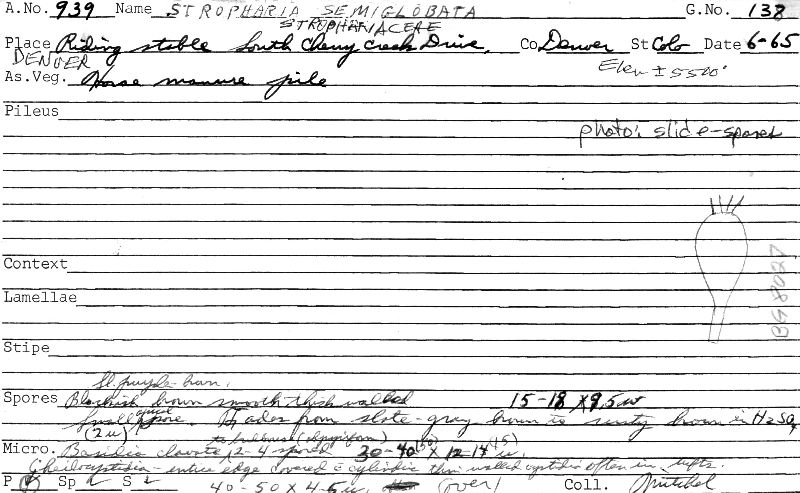 A.No. 939 Name STROPHARIA SEMIGLOBATA G.No. 138
STROPHARIACEAE
Place Riding stable South Cherry Creek Drive, Co Denver St Colo Date 6-65
DENVER Elev ± 5500'
As.Veg. Horse manure pile
Pileus
photo: slide-spores
Context
Lamellae
Stipe
Sl. purple-brown.
Spores Blackish brown smooth thick walled 15-18 X 9.5 u
Small apical pore. Fades from slate-gray brown to rusty brown in H2SO4
(2 u)
Micro. Basidia clavate, 2-4 spored 30-40 (50) X 12-14 (15) u.
Cheilocystidia - entire edge covered c̄ cylindric thin walled cystidia often in tufts.
P Sp S 40-50 X 4-5 u, (over) Coll. Mitchel